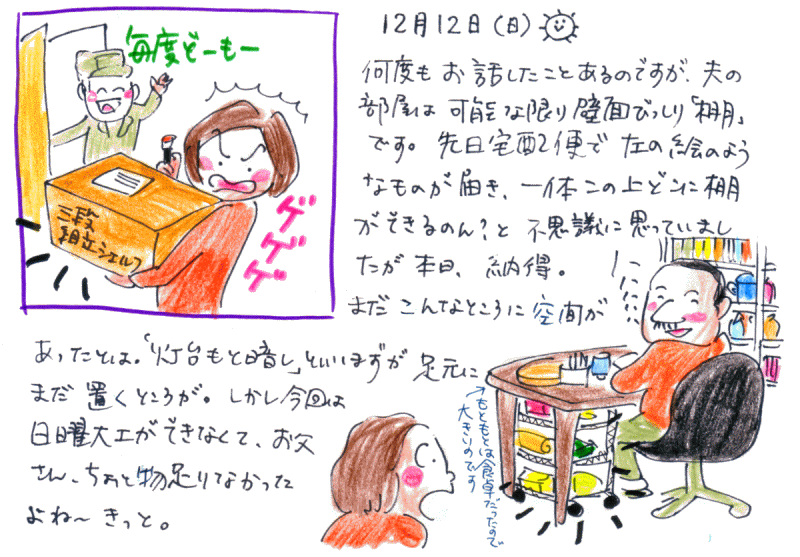 毎度どーもー
三段
組立シェルフ
ゲゲゲゲ
12月12日(日)
何度もお話したことあるのですが、夫の
部屋は可能な限り壁面びっしり「棚」
です。先日宅配便で左の絵のよう
なものが届き、一体この上どこに棚
ができるのん?と不思議に思っていまし
たが本日、納得。
まだこんなところに空間が
あったとは。「灯台もと暗し」といいますが足元に
まだ置くところが。しかし今回は
日曜大工ができなくて、お父
さん、ちょっと物足りなかった
よね〜きっと。
←もともとは食卓だったので
大きいのです